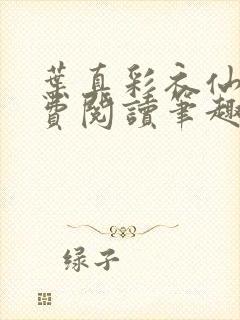 葉真彩衣仙
費閱讀筆趣
绿子